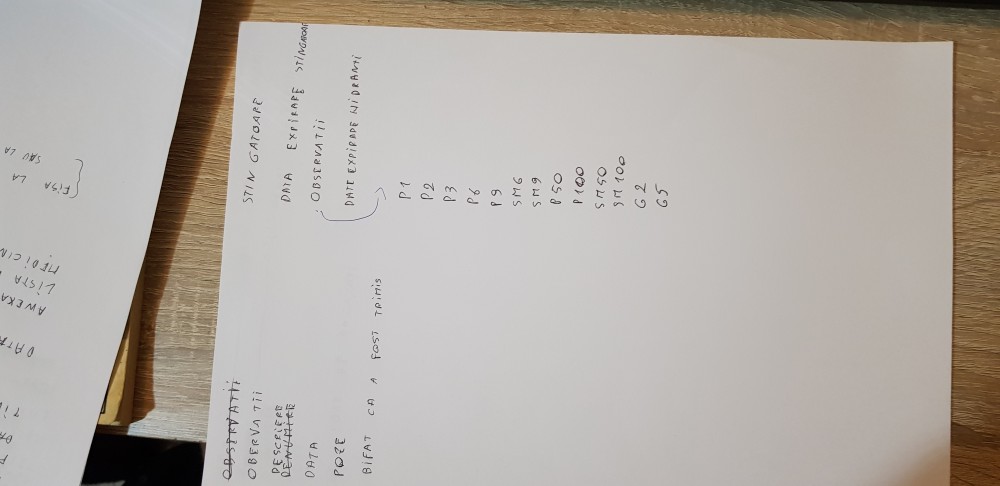 OBSERVATII
OBERVATII
DESCRIERE
DENUMIRE
DATA
POZE
BIFAT CA A FOST TRIMIS
STINGATOARE
DATA EXPIRARE STINGATOARE
OBSERVATII
DATE EXPIRARE HIDRANTI
P1
P2
P3
P6
P9
SM6
SM9
P50
P100
SM50
SM100
G2
G5
FISA LA
SAU LA
MEDICIN
LISTA
ANEXA
DATA